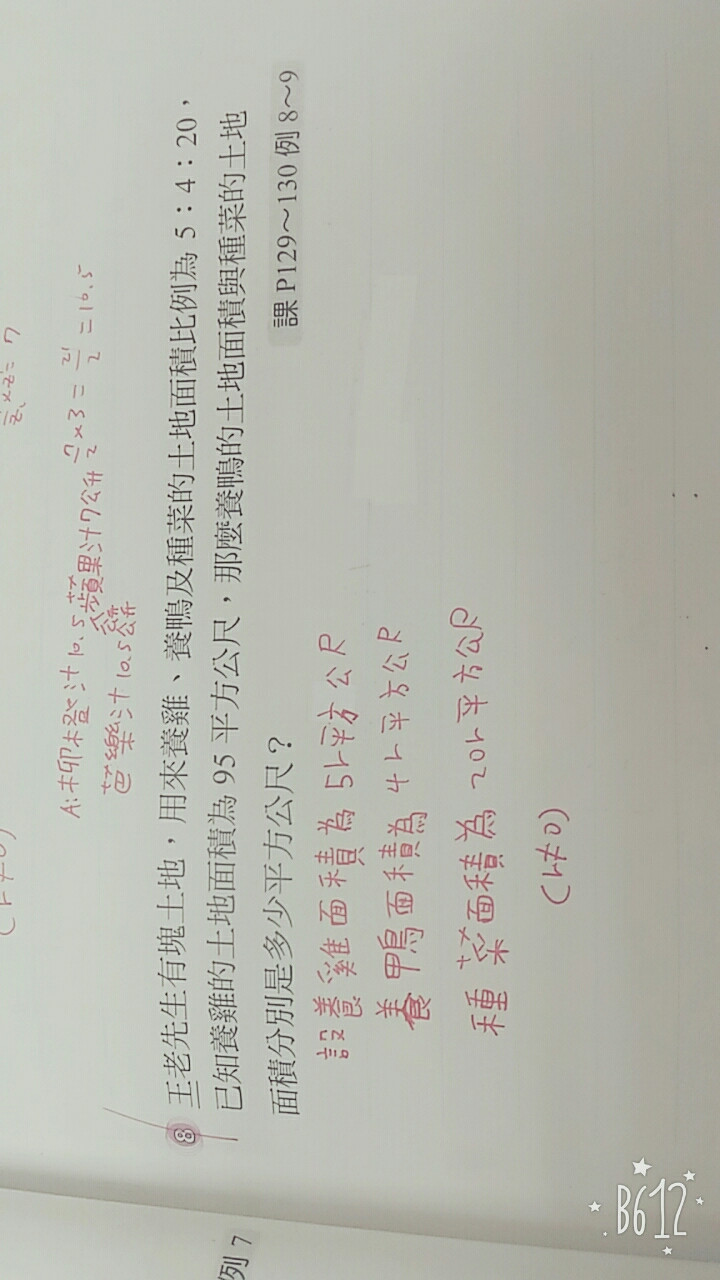 (r≠0)
=7
A:柳橙汁10.5 蘋果汁7公升 7/2×3=21/2=10.5
芭樂汁10.5公升
8 王老先生有塊土地，用來養雞、養鴨及種菜的土地面積比例為 5：4：20，
已知養雞的土地面積為 95 平方公尺，那麼養鴨的土地面積與種菜的土地
面積分別是多少平方公尺？
課 P129～130 例 8～9
設養雞面積為 5r平方公尺
養鴨面積為 4r平方公尺
種菜面積為 20r平方公尺
(r≠0)
例 7
B612